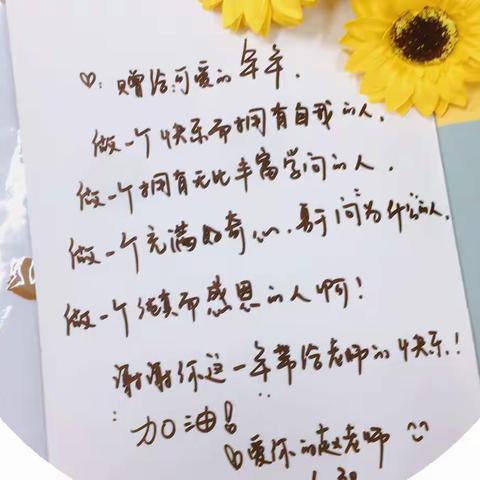 ♡:赠给可爱的年年.
做一个快乐而拥有自我的人.
做一个拥有无比丰富学问的人.
做一个充满好奇心.勇于问为什么的人.
做一个纯真而感恩的人啊!
谢谢你这一年带给老师的快乐!
加油!
♡爱你的赵老师